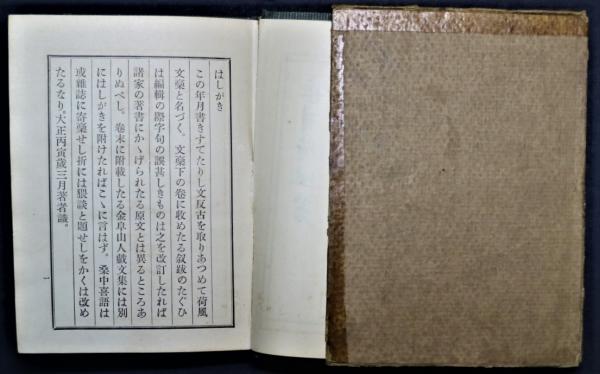 はしがき
この年月書きすてたりし文反古を取りあつめて荷風
文藁と名づく。文藁下の卷に收めたる叙跋のたぐひ
は編輯の際字句の誤甚しきものは之を改訂したれば
諸家の著書にかゝげられたる原文とは異るところあ
りぬべし。卷末に附載したる金阜山人戲文集には別
にはしがきを附けたればこゝに言はず。桑中喜語は
或雜誌に寄藁せし折には猥談と題せしをかくは改め
たるなり。大正丙寅歲三月著者識。
一